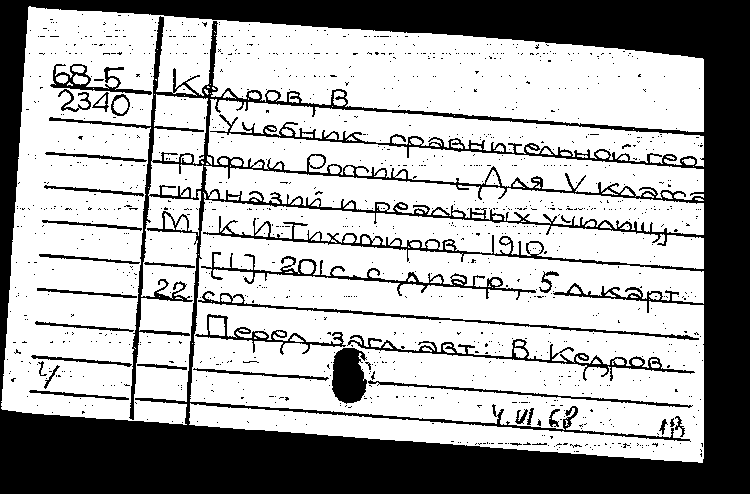 68-5
2340
Кедров, В
Учебник сравнительной гео-
графии России. [Для V класса
гимназий и реальных училищ].
М, К.И.Тихомиров, 1910.
[1], 201 с. с диагр.; 5 л. карт.
22 cm.
Перед загл. авт.: В. Кедров.
4.VI.68